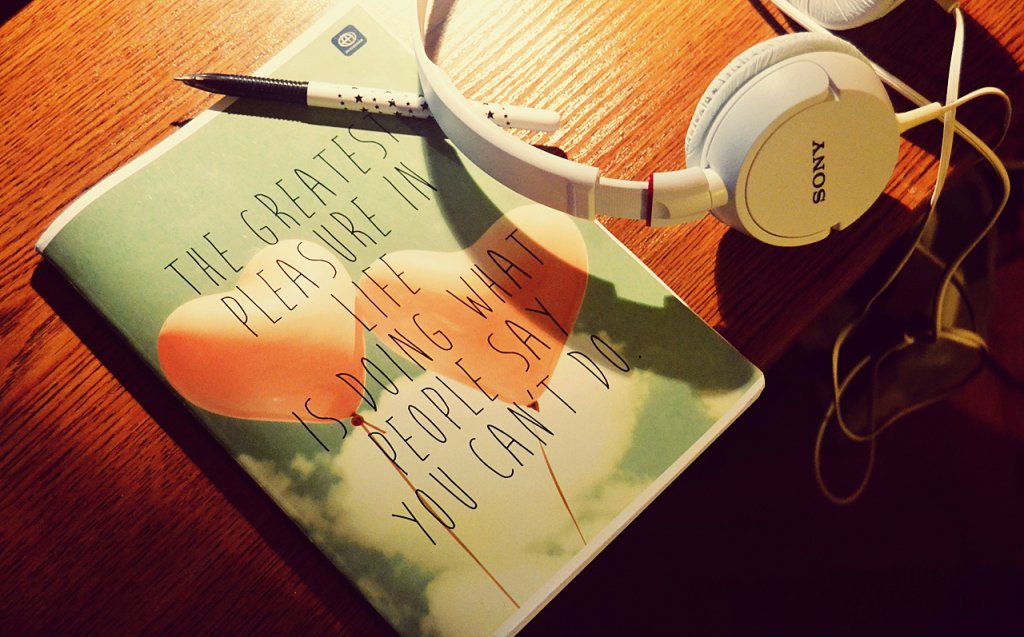 THE GREATEST
PLEASURE IN
LIFE
IS DOING WHAT
PEOPLE SAY
YOU CAN'T DO.
SONY